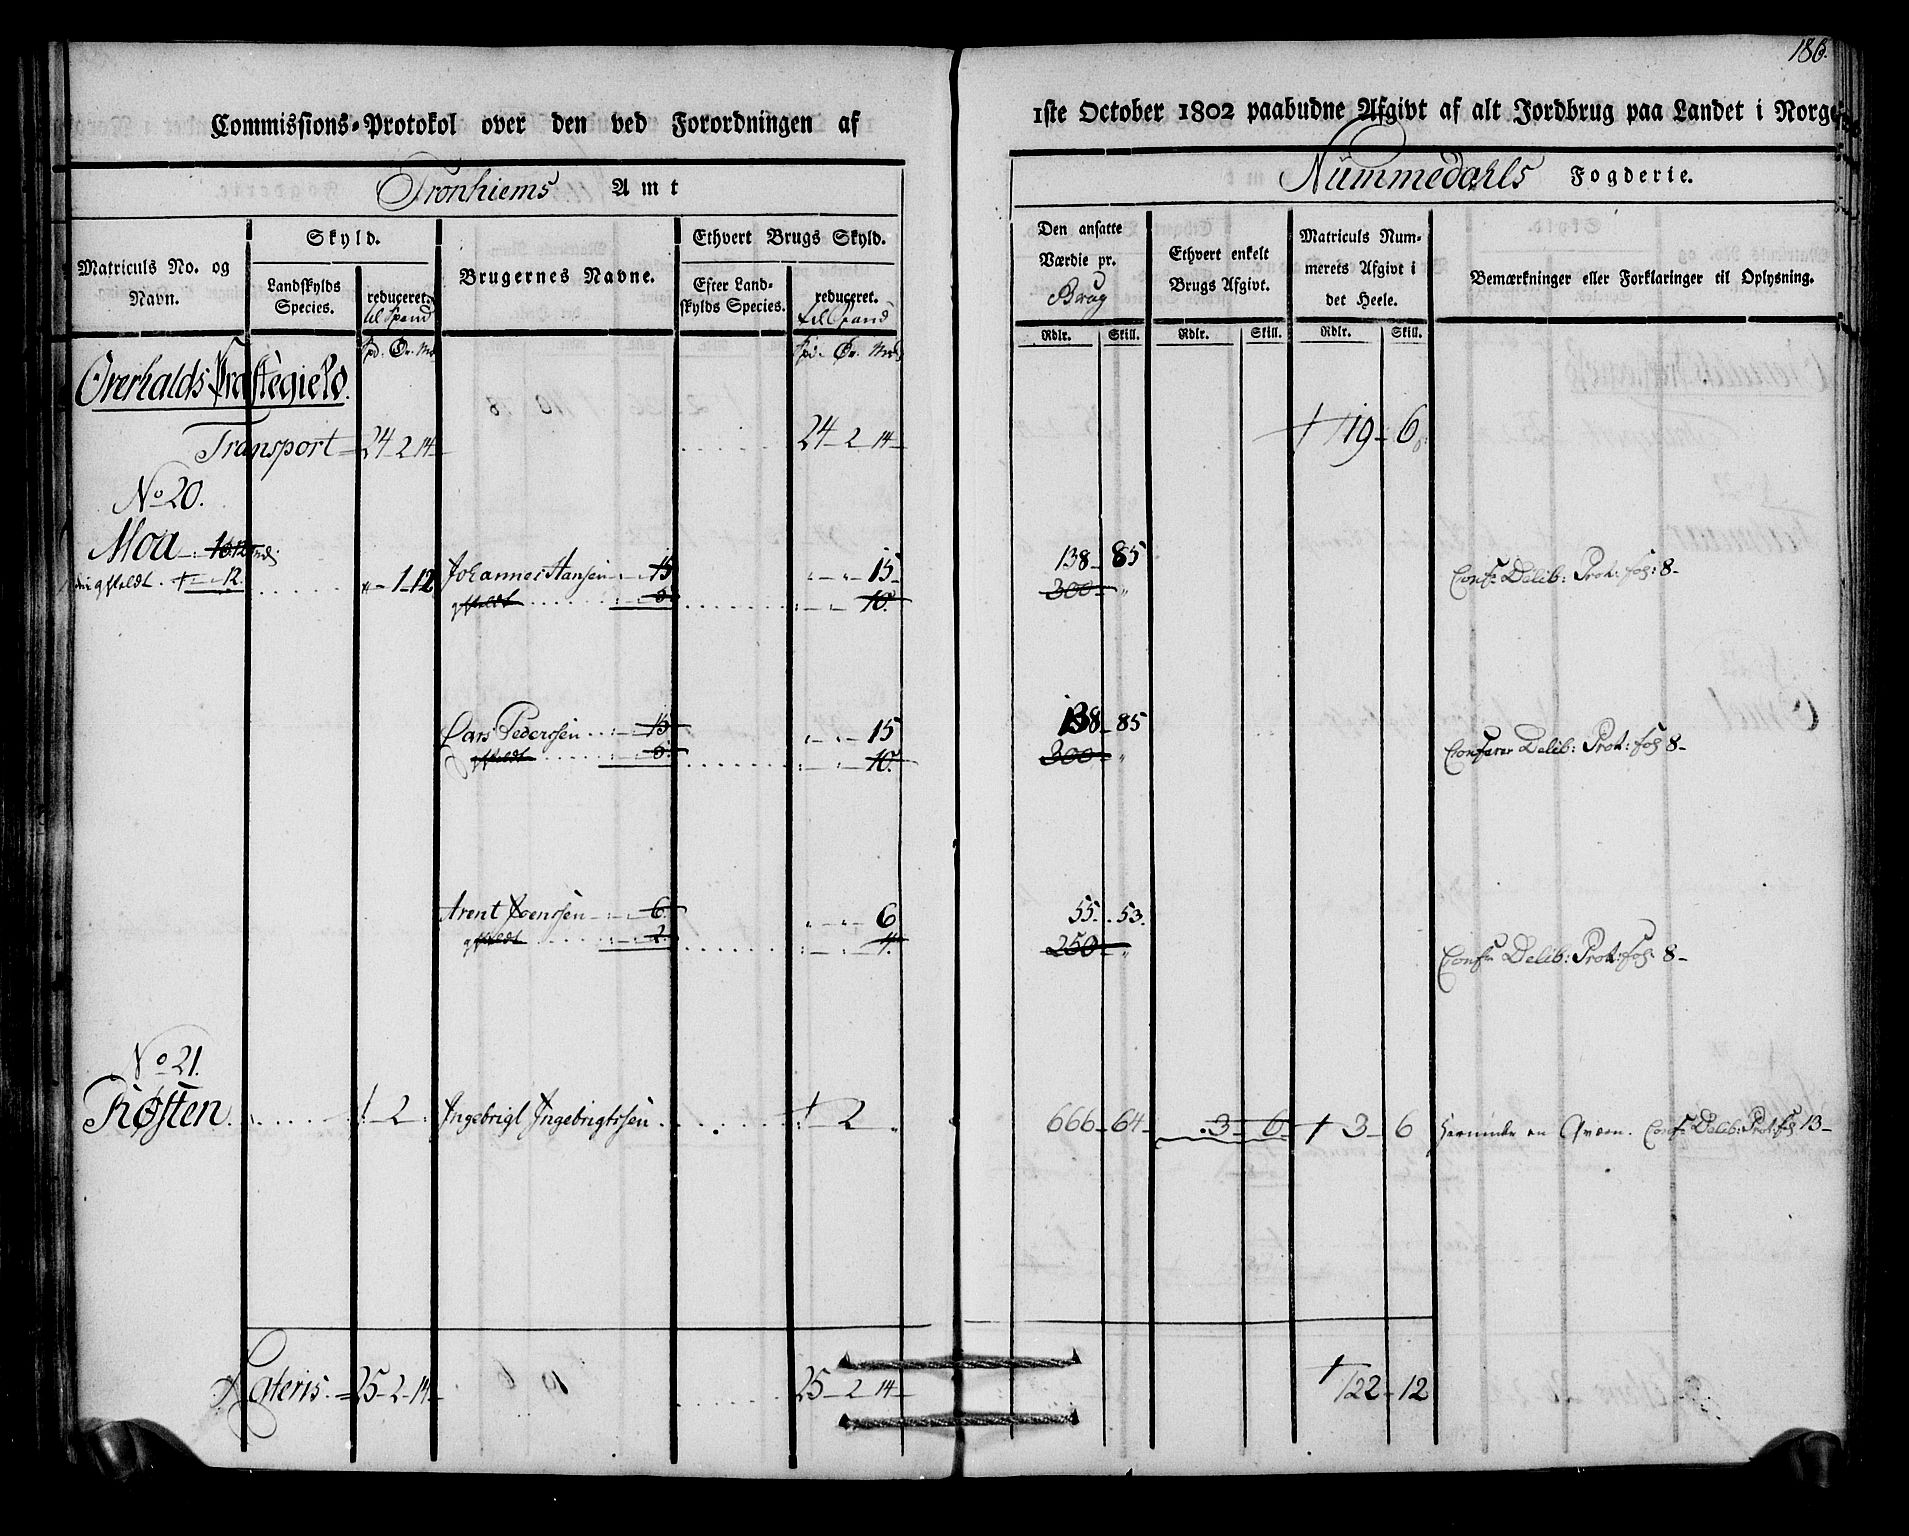 186.
Commissions-Protokol over den ved Forordningen af
1ste October 1802 paabudne Afgivt af alt Jordbrug paa Landet i Norge
Tronhiems Amt
Nummedahls Fogderie.
Matriculs No. og Navn.
Skyld.
Landskylds Species.
reduceret til Spand
Brugernes Navne.
Ethvert Brugs Skyld.
Efter Landskylds Species.
reduceret. til Spand
Den ansatte Værdie pr. Brug
Ethvert enkelt Brugs Afgivt.
Matriculs Nummerets Afgivt i det Heele.
Bemærkninger eller Forklaringer til Oplysning.
Rdlr. Skill. Rdlr. Skill. Rdlr. Skill.
Spd. Ør. Mrk Spd. Ør. Mrk
Overhalds Præstegield.
Transport 24 - 2 14 24 - 2 14 119 - 6
No 20.
Moa 1 - 12 Johannes Hansen 15 15 138 - 85 Conf: Delib: Prot: fol: 8 -
12. 10. 300
Lars Pederssen 15 15 138 - 85 Conferer Delib: Prot: fol 8 -
10. 300
Arent Joenssen 6 6 55 . 53. Conf: Delib: Prot: fol: 8 -
2 4. 250
No 21.
Røsten 1 2 Ingebrigt Ingebrigtssen 1 2 666 - 64 3 - 6 3 - 6 Herunder en Qværn. Conf: Delib: Prot: fol 13 -
Lateris. 25 - 2 - 14 25 - 2 14 122 - 12